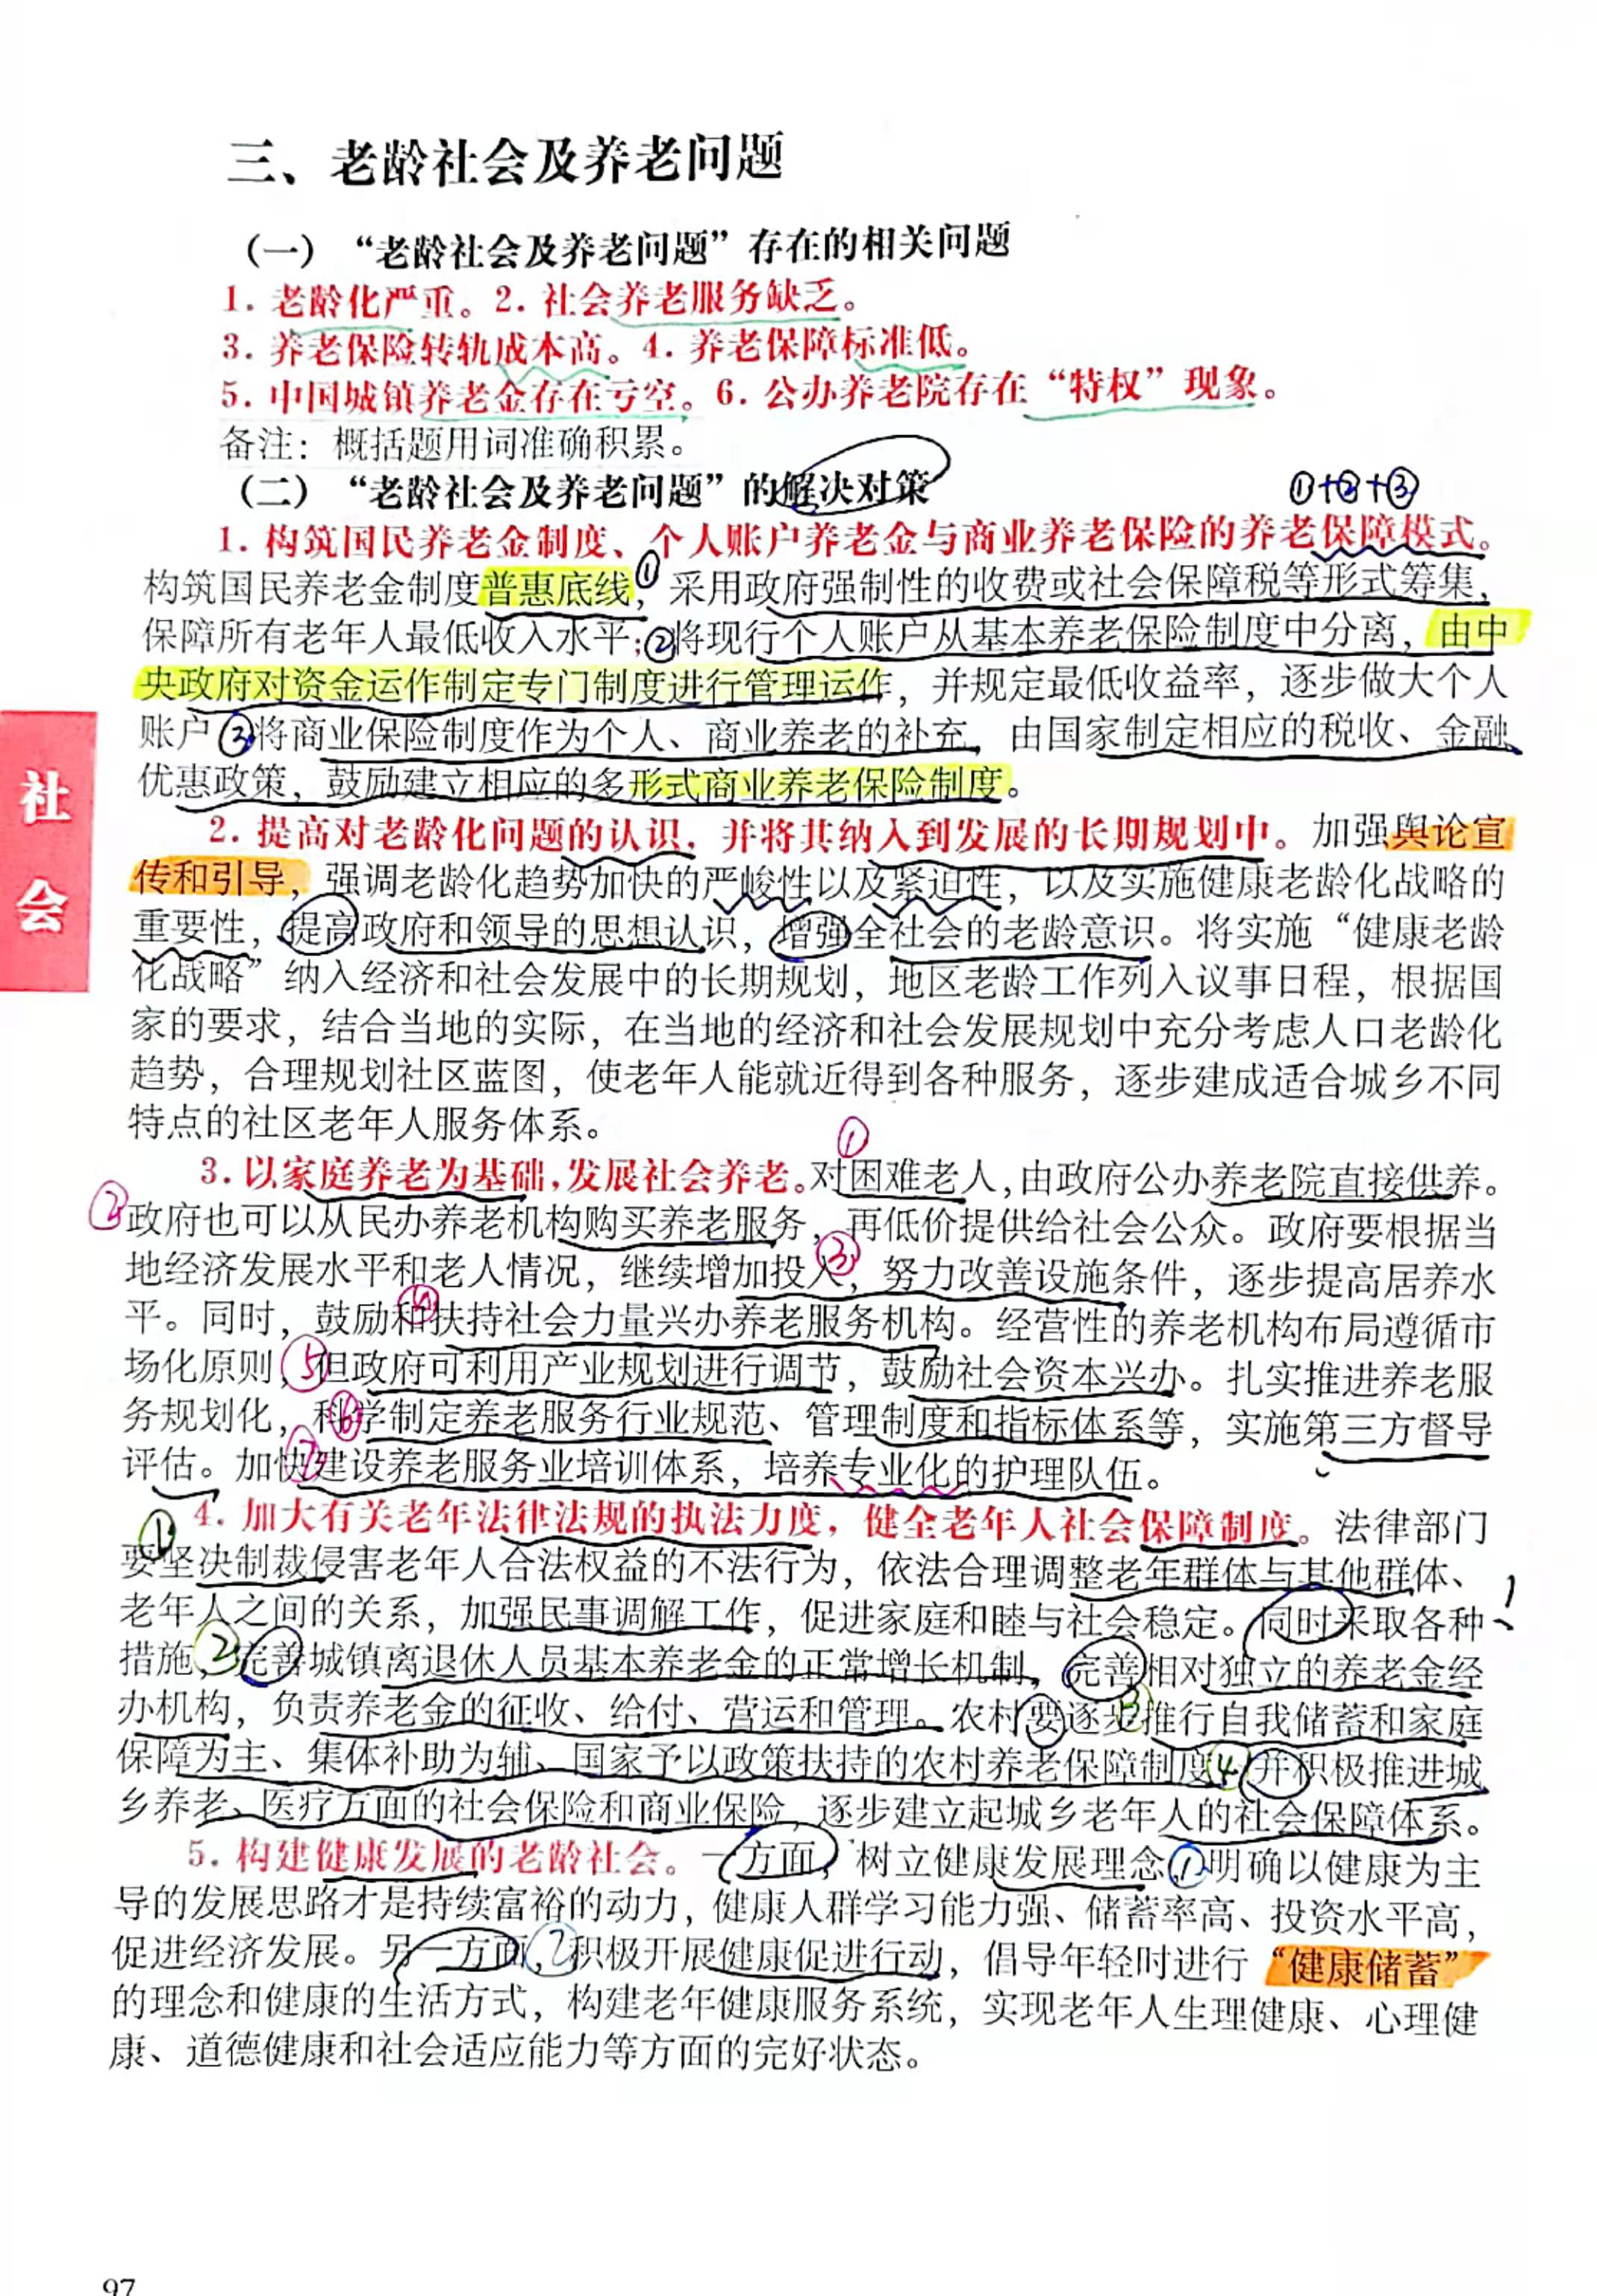 三、老龄社会及养老问题
（一）“老龄社会及养老问题”存在的相关问题
1. 老龄化严重。2. 社会养老服务缺乏。
3. 养老保险转轨成本高。4. 养老保障标准低。
5. 中国城镇养老金存在亏空。6. 公办养老院存在“特权”现象。
备注：概括题用词准确积累。
（二）“老龄社会及养老问题”的解决对策
①+②+③
1. 构筑国民养老金制度、个人账户养老金与商业养老保险的养老保障模式。
构筑国民养老金制度普惠底线，①采用政府强制性的收费或社会保障税等形式筹集，
保障所有老年人最低收入水平；②将现行个人账户从基本养老保险制度中分离，由中
央政府对资金运作制定专门制度进行管理运作，并规定最低收益率，逐步做大个人
账户③将商业保险制度作为个人、商业养老的补充，由国家制定相应的税收、金融
优惠政策，鼓励建立相应的多形式商业养老保险制度。
社
会
2. 提高对老龄化问题的认识，并将其纳入到发展的长期规划中。加强舆论宣
传和引导，强调老龄化趋势加快的严峻性以及紧迫性，以及实施健康老龄化战略的
重要性，提高政府和领导的思想认识，增强全社会的老龄意识。将实施“健康老龄
化战略”纳入经济和社会发展中的长期规划，地区老龄工作列入议事日程，根据国
家的要求，结合当地的实际，在当地的经济和社会发展规划中充分考虑人口老龄化
趋势，合理规划社区蓝图，使老年人能就近得到各种服务，逐步建成适合城乡不同
特点的社区老年人服务体系。
①
3. 以家庭养老为基础，发展社会养老。对困难老人，由政府公办养老院直接供养。
②政府也可以从民办养老机构购买养老服务，再低价提供给社会公众。政府要根据当
地经济发展水平和老人情况，继续增加投入③，努力改善设施条件，逐步提高居养水
平。同时，鼓励和④扶持社会力量兴办养老服务机构。经营性的养老机构布局遵循市
场化原则，⑤但政府可利用产业规划进行调节，鼓励社会资本兴办。扎实推进养老服
务规划化，科⑥学制定养老服务行业规范、管理制度和指标体系等，实施第三方督导
评估。加快⑦建设养老服务业培训体系，培养专业化的护理队伍。
①4. 加大有关老年法律法规的执法力度，健全老年人社会保障制度。法律部门
要坚决制裁侵害老年人合法权益的不法行为，依法合理调整老年群体与其他群体、
老年人之间的关系，加强民事调解工作，促进家庭和睦与社会稳定。同时采取各种
措施，②完善城镇离退休人员基本养老金的正常增长机制，完善相对独立的养老金经
办机构，负责养老金的征收、给付、营运和管理。农村要逐步③推行自我储蓄和家庭
保障为主、集体补助为辅、国家予以政策扶持的农村养老保障制度④并积极推进城
乡养老、医疗方面的社会保险和商业保险，逐步建立起城乡老年人的社会保障体系。
5. 构建健康发展的老龄社会。一方面，树立健康发展理念，①明确以健康为主
导的发展思路才是持续富裕的动力，健康人群学习能力强、储蓄率高、投资水平高，
促进经济发展。另一方面，②积极开展健康促进行动，倡导年轻时进行“健康储蓄”
的理念和健康的生活方式，构建老年健康服务系统，实现老年人生理健康、心理健
康、道德健康和社会适应能力等方面的完好状态。
97